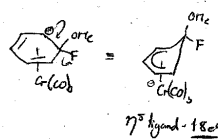 ⊖
OMe
F
Cr(CO)₃
=
OMe
F
⊖
Cr(CO)₃
η⁵ ligand - 18e⊖